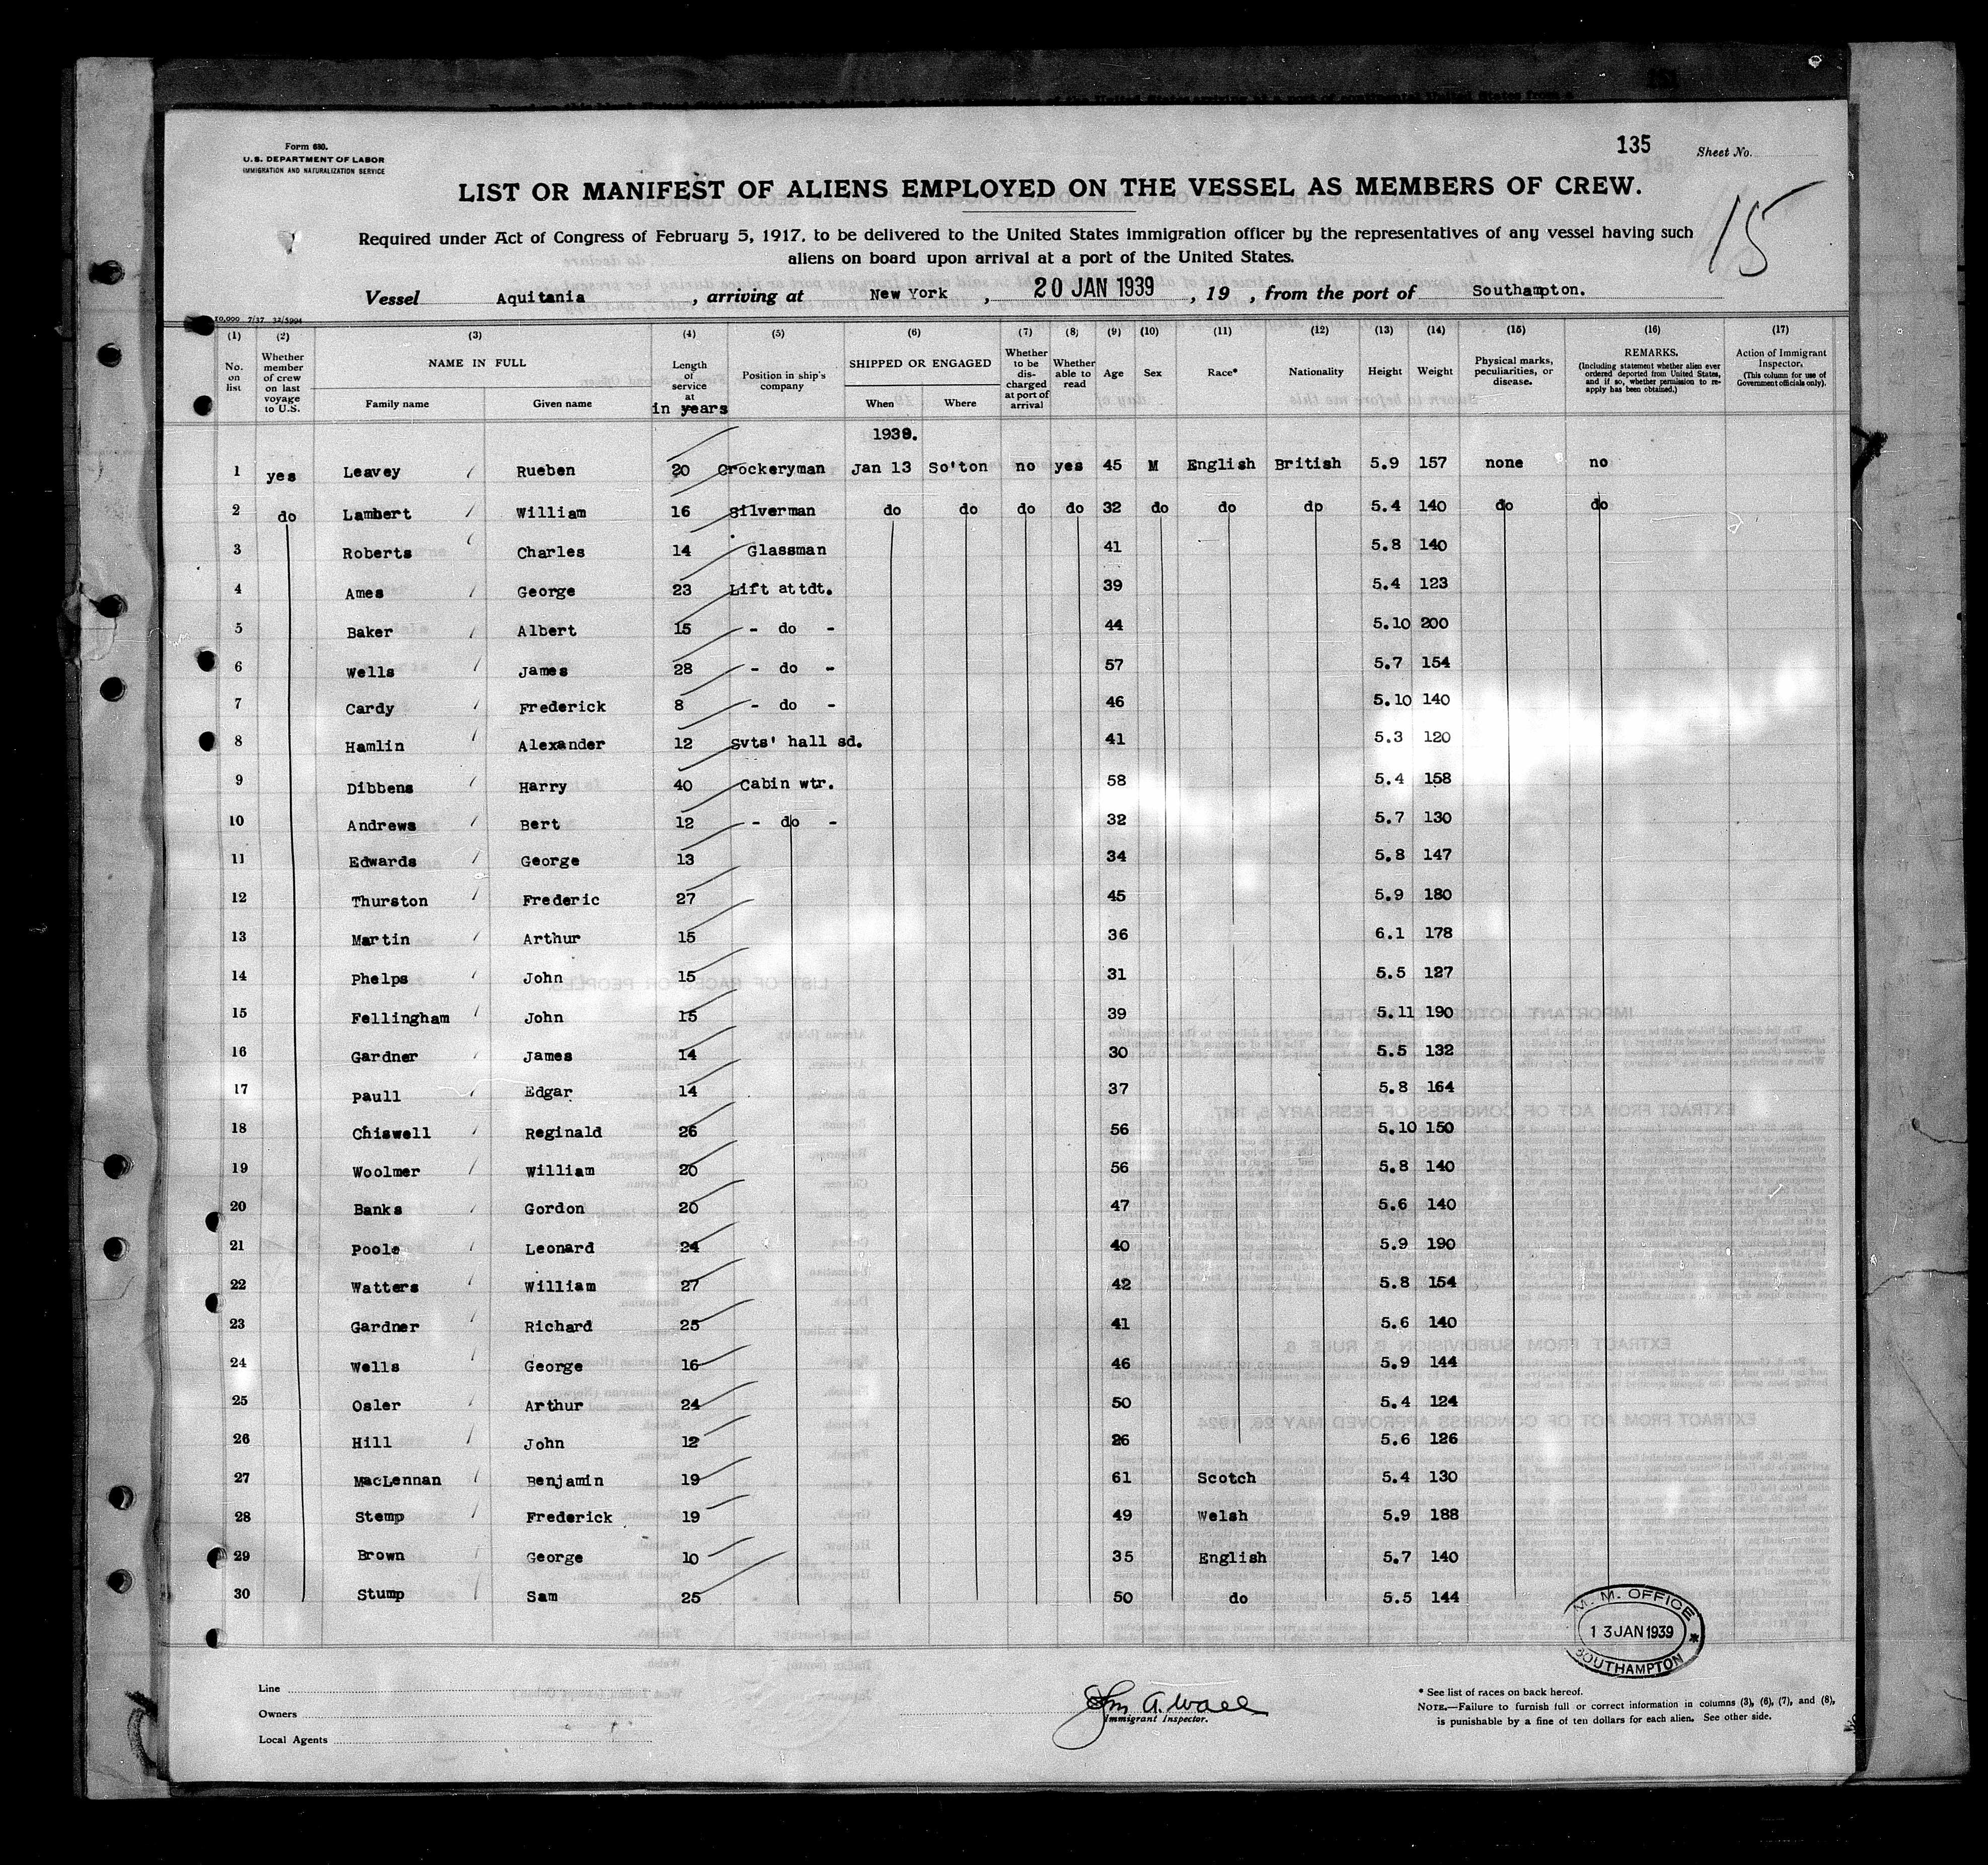 Form 680.
U.S. DEPARTMENT OF LABOR
IMMIGRATION AND NATURALIZATION SERVICE
135 Sheet No.
15
LIST OR MANIFEST OF ALIENS EMPLOYED ON THE VESSEL AS MEMBERS OF CREW.
Required under Act of Congress of February 5, 1917, to be delivered to the United States immigration officer by the representatives of any vessel having such
aliens on board upon arrival at a port of the United States.
Vessel Aquitania, arriving at New York, 20 JAN 1939, 19 , from the port of Southampton.
10,000 7/37 32/5904
(1) (2) (3) (4) (5) (6) (7) (8) (9) (10) (11) (12) (13) (14) (15) (16) (17)
No. on list
Whether member of crew on last voyage to U.S.
NAME IN FULL
Family name Given name
Length of service at in years
Position in ship's company
SHIPPED OR ENGAGED
When Where
Whether to be discharged at port of arrival
Whether able to read
Age
Sex
Race*
Nationality
Height
Weight
Physical marks, peculiarities, or disease.
REMARKS.
(Including statement whether alien ever ordered deported from United States, and if so, whether permission to reapply has been obtained.)
Action of Immigrant Inspector.
(This column for use of Government officials only).
1939.
1 yes Leavey Rueben 20 Crockeryman Jan 13 So'ton no yes 45 M English British 5.9 157 none no
2 do Lambert William 16 Silverman do do do do 32 do do do 5.4 140 do do
3 Roberts Charles 14 Glassman 41 5.8 140
4 Ames George 23 Lift attdt. 39 5.4 123
5 Baker Albert 15 - do - 44 5.10 200
6 Wells James 28 - do - 57 5.7 154
7 Cardy Frederick 8 - do - 46 5.10 140
8 Hamlin Alexander 12 Svts' hall sd. 41 5.3 120
9 Dibbens Harry 40 Cabin wtr. 58 5.4 158
10 Andrews Bert 12 - do - 32 5.7 130
11 Edwards George 13 34 5.8 147
12 Thurston Frederic 27 45 5.9 180
13 Martin Arthur 15 36 6.1 178
14 Phelps John 15 31 5.5 127
15 Fellingham John 15 39 5.11 190
16 Gardner James 14 30 5.5 132
17 Paull Edgar 14 37 5.8 164
18 Chiswell Reginald 26 56 5.10 150
19 Woolmer William 20 56 5.8 140
20 Banks Gordon 20 47 5.6 140
21 Poole Leonard 24 40 5.9 190
22 Watters William 27 42 5.8 154
23 Gardner Richard 25 41 5.6 140
24 Wells George 16 46 5.9 144
25 Osler Arthur 24 50 5.4 124
26 Hill John 12 26 5.6 126
27 MacLennan Benjamin 19 61 Scotch 5.4 130
28 Stemp Frederick 19 49 Welsh 5.9 188
29 Brown George 10 35 English 5.7 140
30 Stump Sam 25 50 do 5.5 144
M. M. OFFICE
13 JAN 1939
SOUTHAMPTON
Line
Owners
Local Agents
Jm A. Wall
Immigrant Inspector.
* See list of races on back hereof.
NOTE.—Failure to furnish full or correct information in columns (3), (6), (7), and (8),
is punishable by a fine of ten dollars for each alien. See other side.